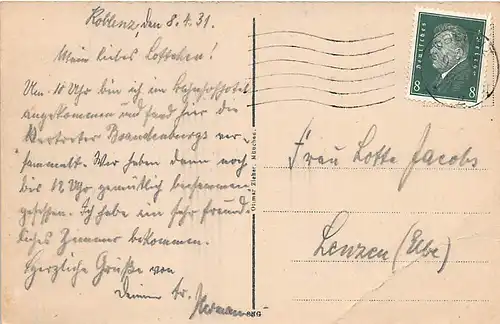 Koblenz, den 8.4.31.
Mein liebes Lottchen!
Um 10 Uhr bin ich im Bahnhofhotel
angekommen und fand hier die
Vertreter Brandenburgs ver-
sammelt. Wir haben dann noch
bis 12 Uhr gemütlich beisammen
gesessen. Ich habe ein sehr freund-
liches Zimmer bekommen.
Herzliche Grüße von
Deinem tr. Hermann
DEUTSCHES REICH
8 8
Ottmar Zieher, München
Frau Lotte Jacobs
Lenzen (Elbe)